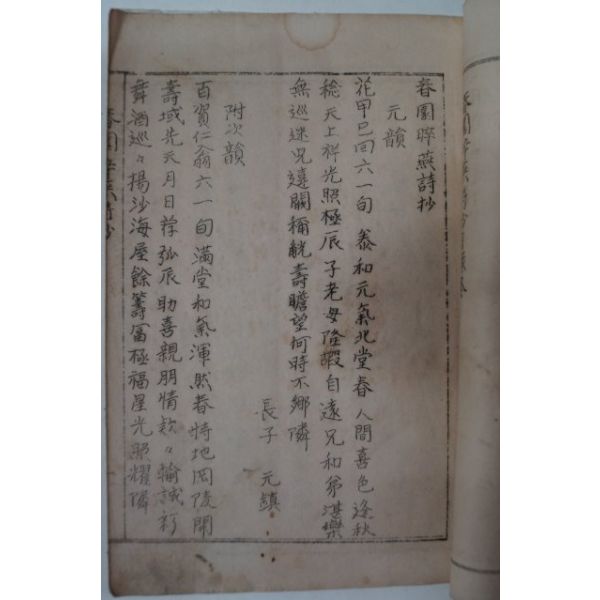 春園晬燕詩抄
元韻
花甲已回六一旬 泰和元氣北堂春 人間喜色逢秋
稔 天上祥光照極辰 子老母隆遐自遠 兄和弟湛樂
無巡 迷兄遠關稱觥壽 瞻望何時不鄉隣
長子 元鎮
附次韻
百賀仁翁六一旬 滿堂和氣渾然春 特地岡陵開
壽域 先天月日荐弧辰 助喜親朋情欵々 輸誠彩
舞酒巡々 揚沙海屋餘籌富 極福星光照耀隣